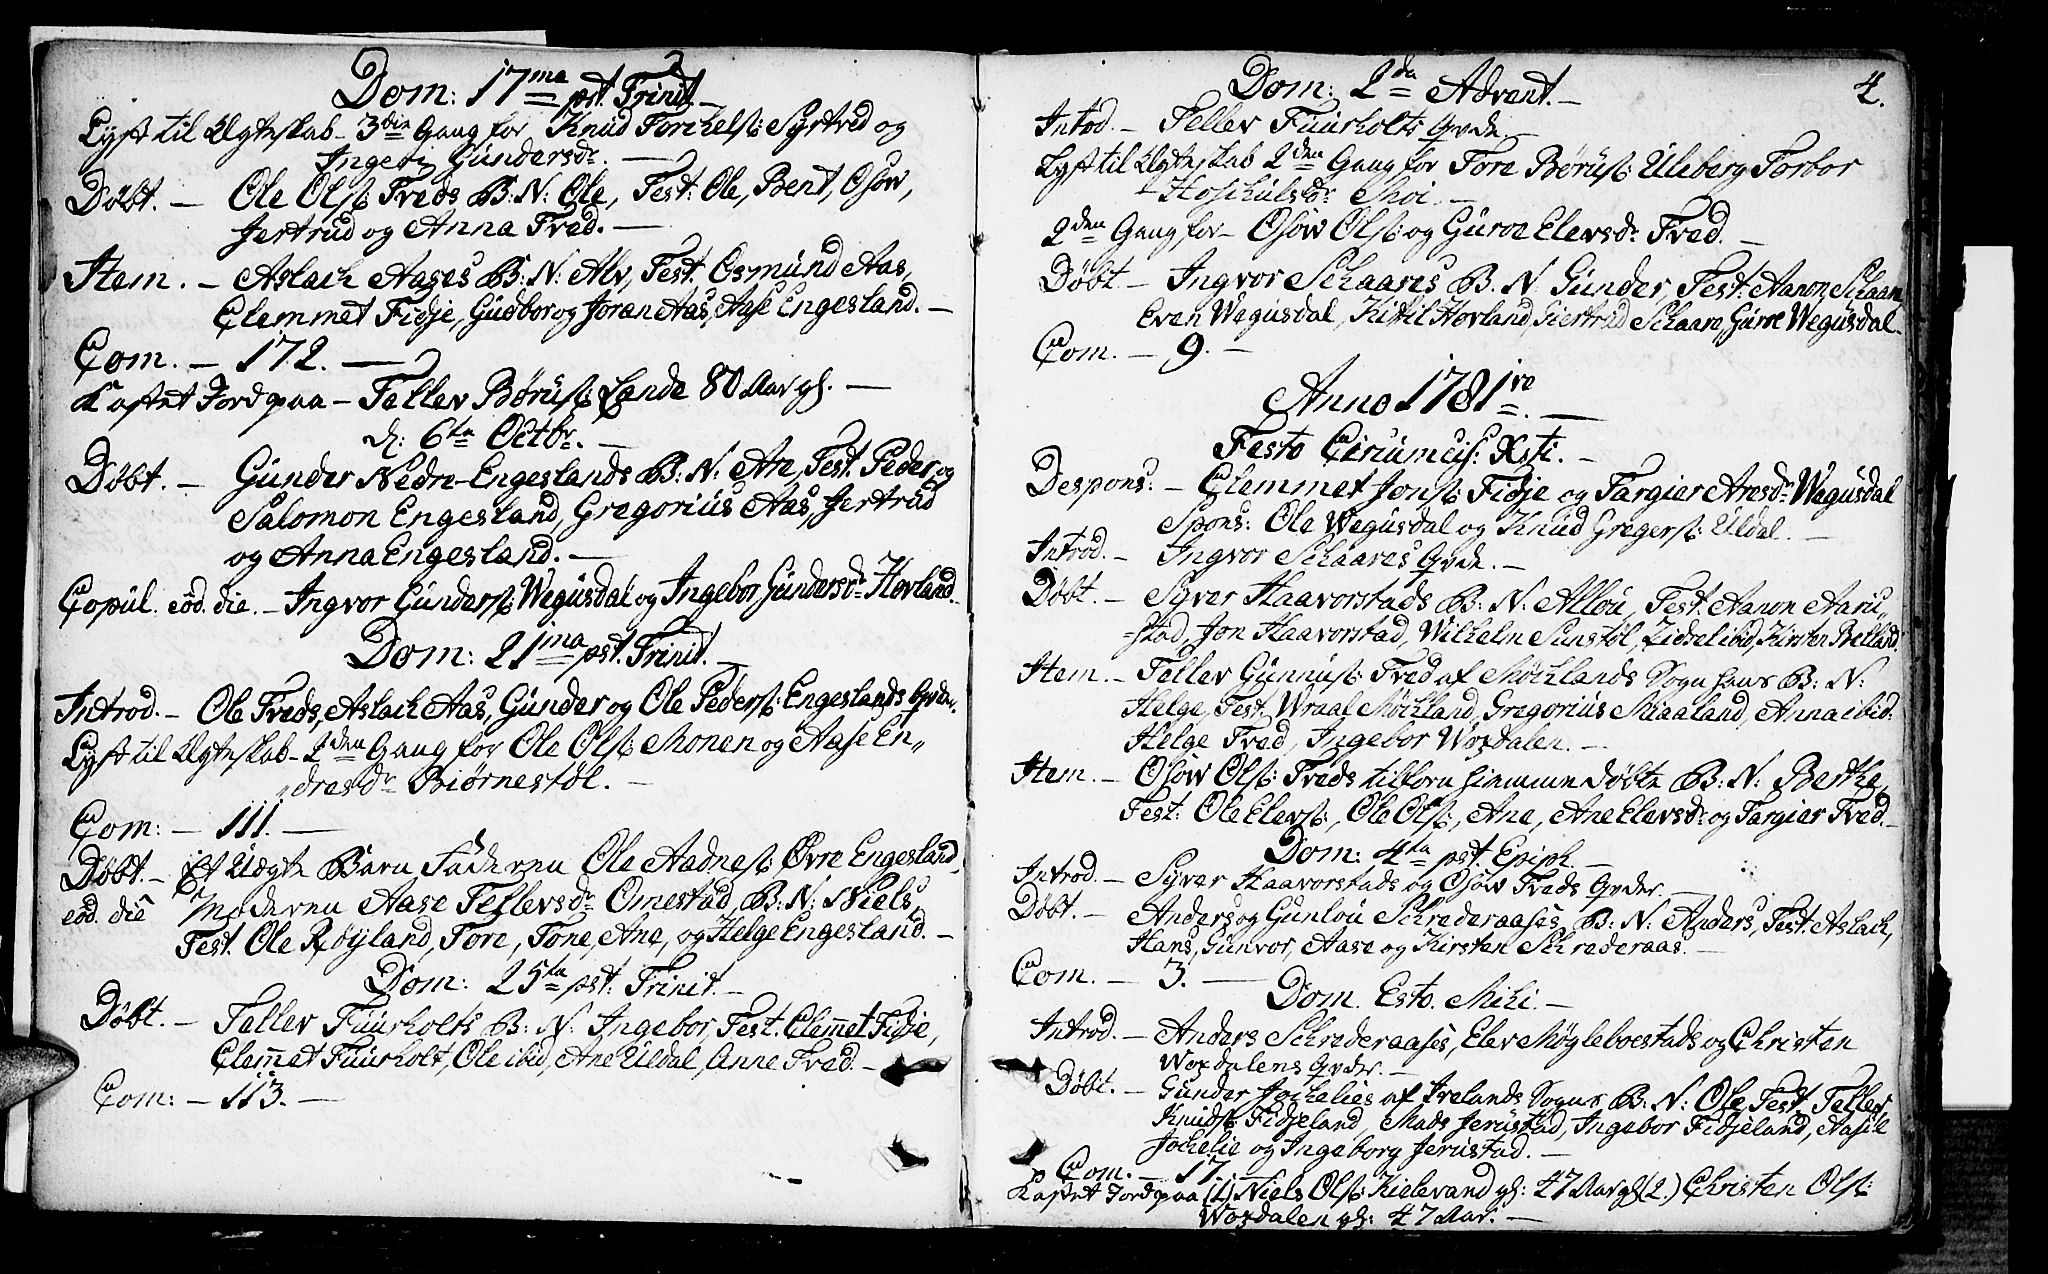 Dom: 17ma pst. Trinit.
Lyst til Ægteskab 3die Gang for Knud Torchels: Syrtved og
Ingeri Gundersdr. —
Døbt. — Ole Ols: Treds B: N: Ole, Test: Ole, Bent, Osow,
Jertrud og Anna Tred. —
Item. — Aslach Aases B: N: Alv, Test: Osmund Aas,
Clemmet Fidje, Gudbor og Joran Aas, Aase Engesland. —
Com. — 172. —
Kastet Jord paa — Tellev Børus: Lande 80 Aar gl. —
d: 6ta Octbr. —
Døbt. — Gunder Nedre-Engeslands B: N: Are, Test. Peder og
Salomon Engesland, Gregorius Aas, Jertrud
og Anna Engesland. —
Copul. eod. die. — Ingvor Gunders: Wegusdal og Ingebor Gundersdr Hovland.
Dom: 21ma pst. Trinit. —
Introd. — Ole Treds, Aslach Aas, Gunder og Ole Peders: Engeslands Qvdr.
Lyst til Ægteskab 2den Gang for Ole Ols: Monen og Aase En„
„dresdr Biørnestøl. —
Com: — 111. —
Døbt. — et Uægte Barn Faderen Ole Aadnes: Øvre Engesland,
eod. die Moderen Aase Tellevsdr Omestad, B: N: Niels,
Test. Ole Røyland, Tore, Tone, Ane, og Helge Engesland. —
Dom: 25ta pst: Trinit. —
Døbt. — Tellev Fuurholts B: N: Ingebor, Test. Clemet Fidje,
Clemet Fuurholt, Ole ibid, Ane Uldal, Anne Tved. —
Com: — 113. —
4.
Dom: 2da Advent. —
Introd. — Tellev Fuurholts Qvde. —
Lyst til Ægteskab 2den Gang for Tore Børus: Uleberg Torbor
Hoskulsdr Moi. —
2den Gang for — Osow Ols: og Guroe Elevsdr Tred. —
Døbt — Ingvor Schaares B. N. Gunder, Test: Aanon Schaare
Even Wegusdal, Kittil Hovland, Giertrud Schaare, Guroe Wegusdal.
Com. — 9. —
Anno 1781re. —
Festo Circumcis: Xsti. —
Despons: — Clemmet Jons: Fidje og Targier Aresdr Wegusdal
Spons: Ole Wegusdal og Knud Gregers: Uldal. —
Introd. — Ingvor Schaares Qvde. —
Døbt. — Syver Haavorstads B. N: Allou, Test: Aanon Aaru„
„stad, Jon Haavorstad, Wilhelm Sunstøl, Zidsel ibid, Kirsten Belland.
Item. — Tellev Gunnus: Tred af Mochlands Sogn hans B: N:
Helge, Test. Wraal Mochland, Gregorius Maaland, Anna ibid:
Helge Tred, Ingebor Woxdalen. —
Item. — Osow Ols: Treds tilforn hiemme døbte B: N: Berthe,
Test: Ole Elevs:, Ole Ols:, Ane, Ane Elevsdr og Targier Tred. —
Dom: 4ta pst. Epiph. —
Introd. — Syver Haavorstads og Osow Treds Qvder. —
Døbt. — Anders og Gunlou Schrederaases, B: N: Anders, Test: Aslach,
Hans, Gunvor, Aase og Kirsten Schrederaas. —
Com. — 3. —
Dom. Esto. Mihi. —
Introd. — Anders Schrederaases, Elev Møgleboestads og Christen
Woxdalens Qvder. —
Døbt. — Gunder Jochelies af Ivelands Sogns B: N: Ole, Test. Tellev
Knuds: Fidjeland, Mads Jerustad, Ingebor Fidjeland, Aasil
Jochelie og Ingeborg Jerustad. —
Com. — 17. —
Kastet Jord paa (1.) Niels Ols: Kielevand gl: 47 Aar gl (2.) Christen Ols:
Woxdalen gl: 47 Aar. —